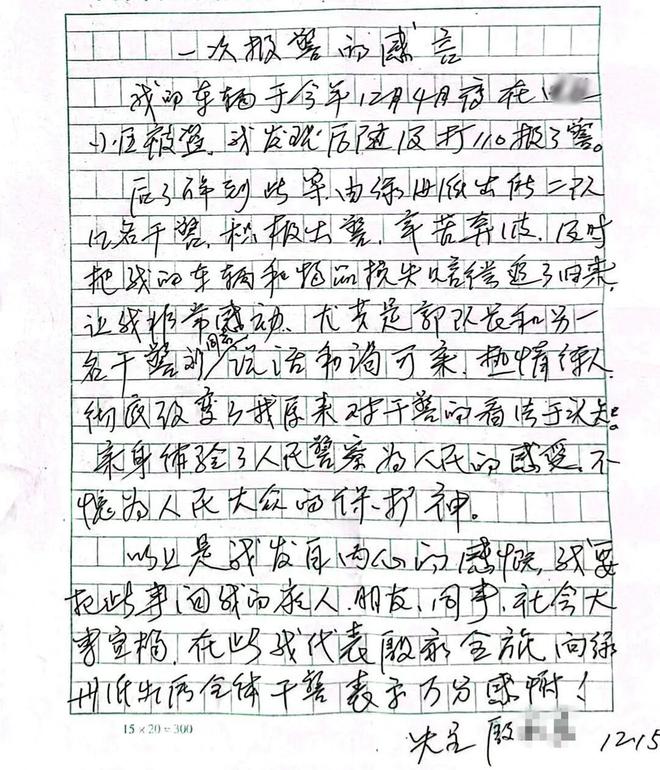 一次报警的感言
我的车辆于今年12月4日夜在
小区被盗。我发现后随及打110报了警。
后了解到此案由绿洲派出所二队
几名干警,积极出警,辛苦奔波,及时
把我的车辆和物品损失赔偿追了回来,
让我非常感动、尤其是郭队长和另一
名干警刘同志说话和谒可亲,热情待人
彻底改变了我原来对干警的看法于认知。
亲身体验了人民警察为人民的感受,不
愧为人民大众的保护神。
以上是我发自内心的感慨,我要
把此事向我的家人、朋友、同事、社会大
事宣扬,在此我代表殷家全族向绿
洲派出所全体干警表示万分感谢!
失主 殷 12.15
15×20=300